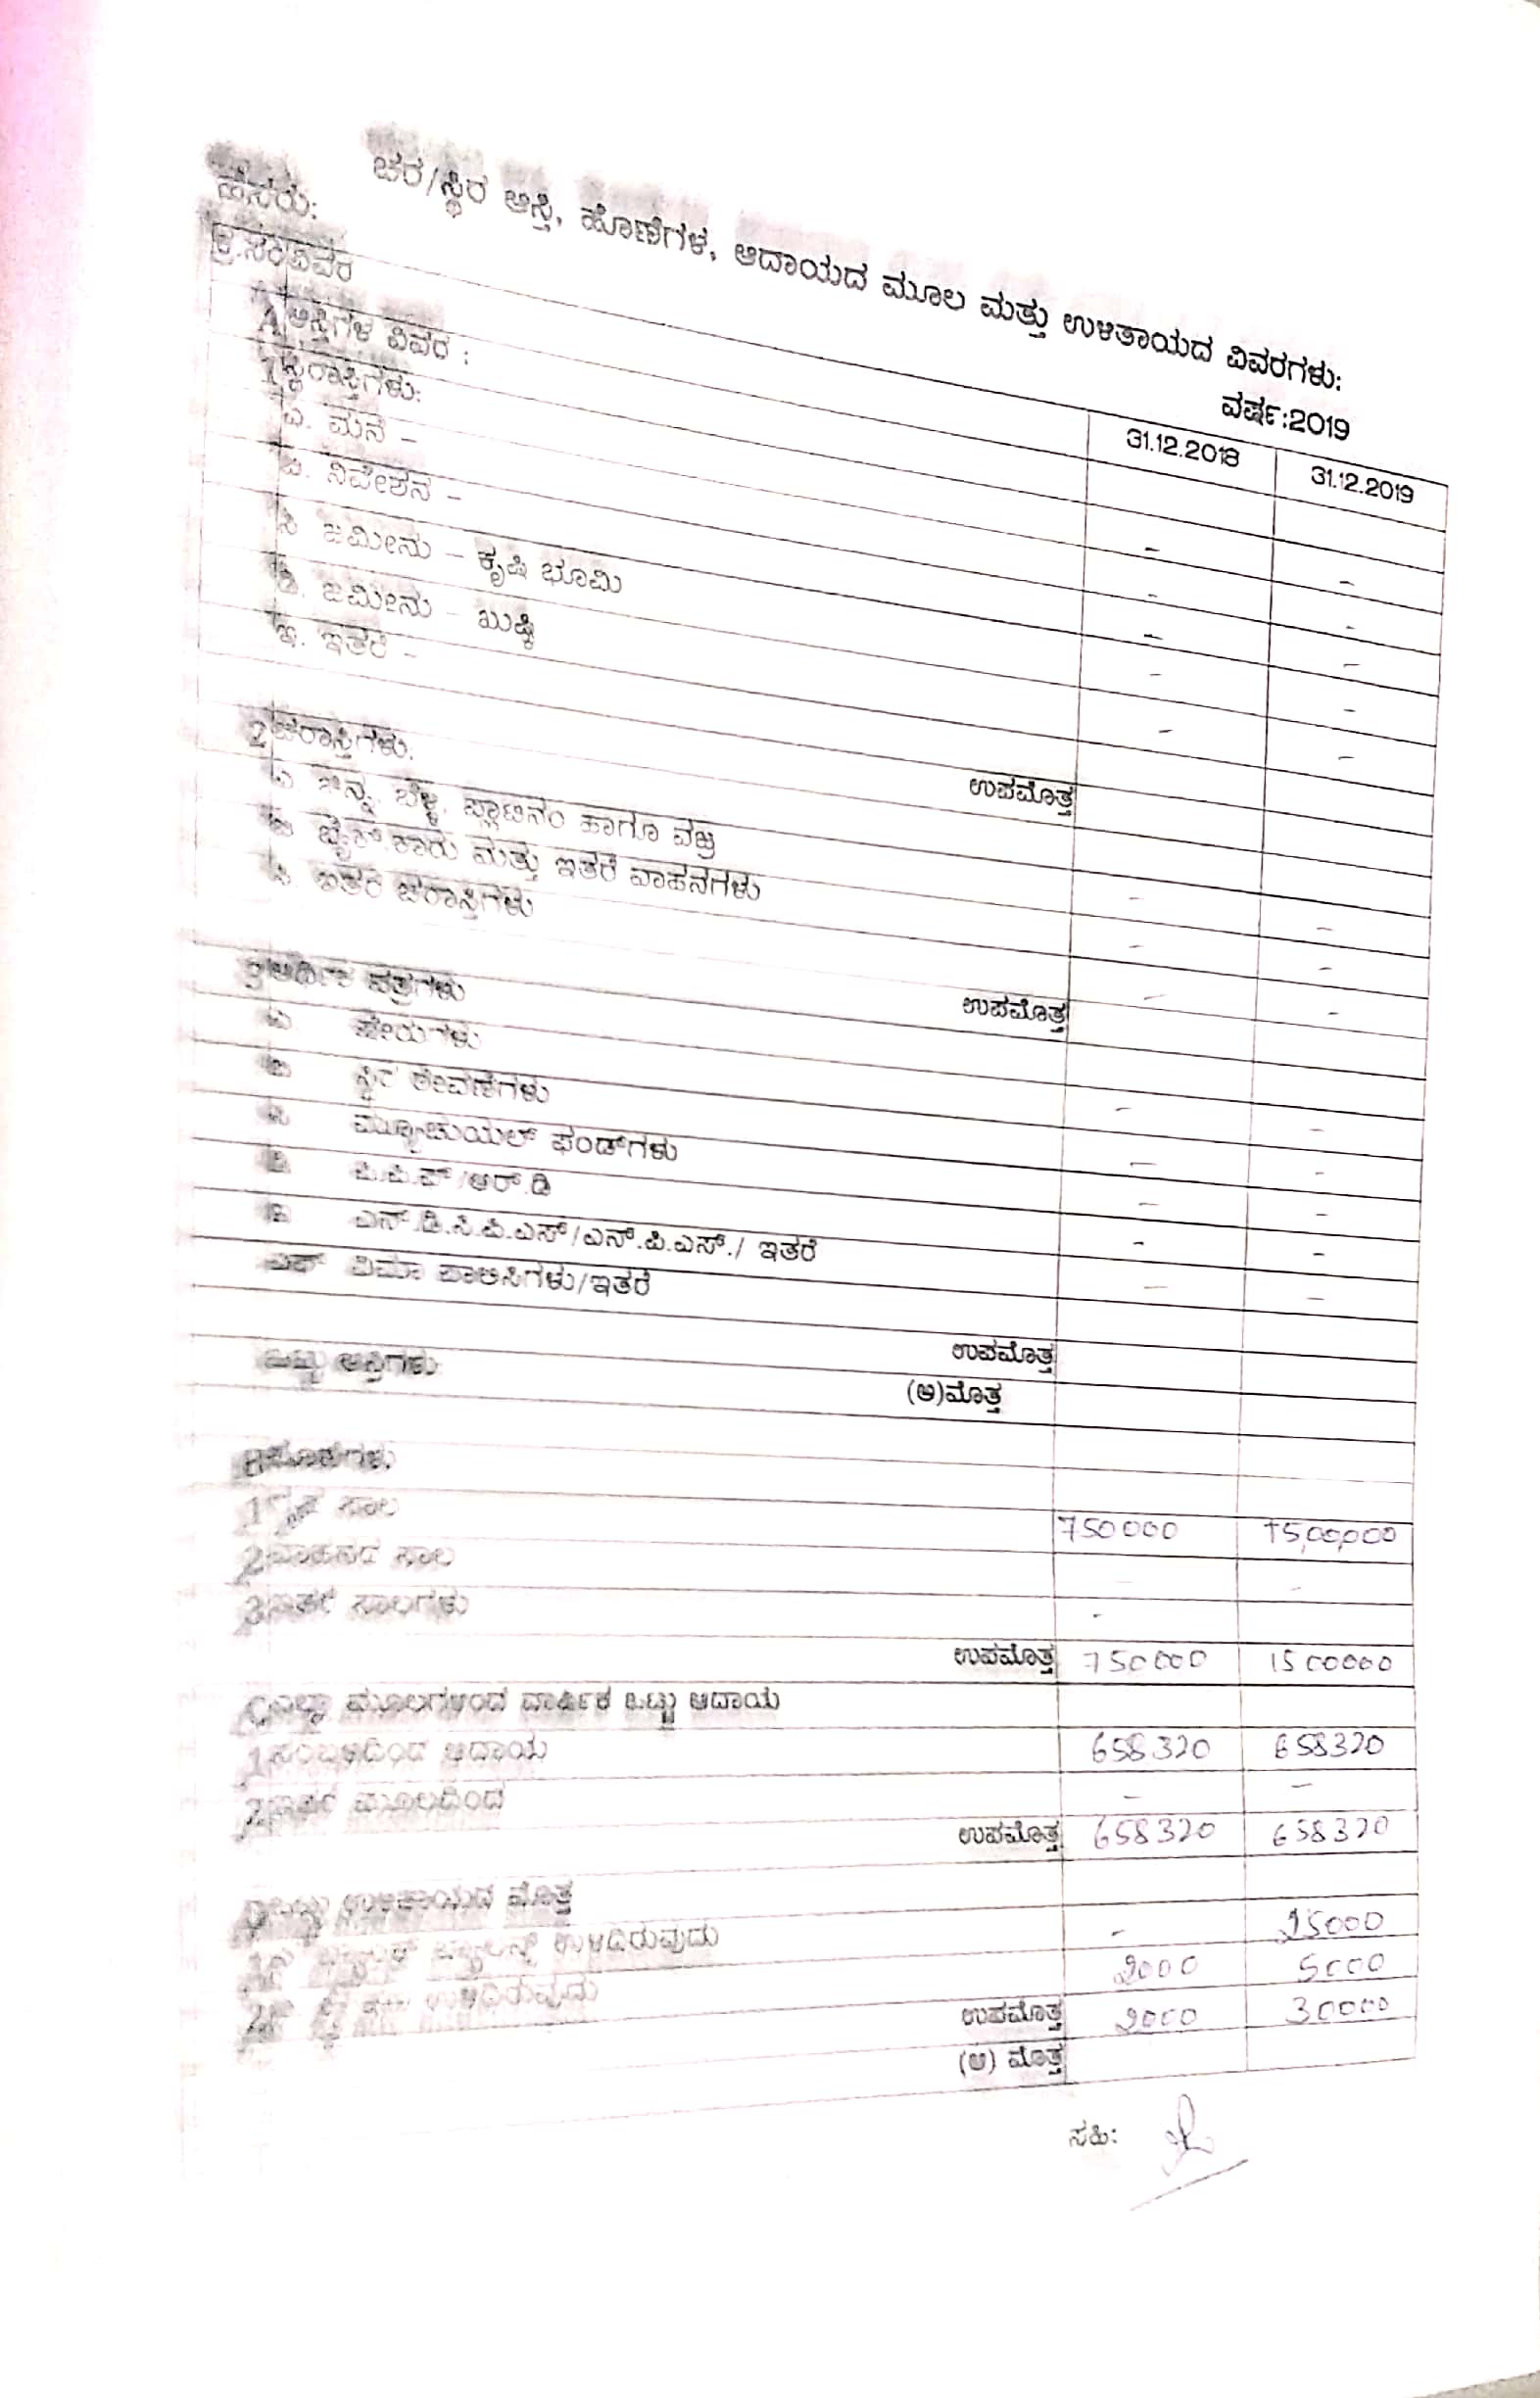 ಚರ/ಸ್ಥಿರ ಆಸ್ತಿ, ಹೊಣೆಗಳ, ಆದಾಯದ ಮೂಲ ಮತ್ತು ಉಳಿತಾಯದ ವಿವರಗಳು:
ಹೆಸರು: ವರ್ಷ:2019
ಕ್ರ.ಸಂ ವಿವರ 31.12.2018 31.12.2019
A ಆಸ್ತಿಗಳ ವಿವರ :
1 ಸ್ಥಿರಾಸ್ತಿಗಳು:
ಎ. ಮನೆ – – –
ಬಿ. ನಿವೇಶನ – – –
ಸಿ. ಜಮೀನು – ಕೃಷಿ ಭೂಮಿ – –
ಡಿ. ಜಮೀನು – ಖುಷ್ಕಿ – –
ಇ. ಇತರೆ – – –
ಉಪಮೊತ್ತ
2 ಚರಾಸ್ತಿಗಳು.
ಎ. ಚಿನ್ನ, ಬೆಳ್ಳಿ, ಪ್ಲಾಟಿನಂ ಹಾಗೂ ವಜ್ರ – –
ಬಿ. ಬೈಕ್.ಕಾರು ಮತ್ತು ಇತರೆ ವಾಹನಗಳು – –
ಸಿ. ಇತರೆ ಚರಾಸ್ತಿಗಳು – –
ಉಪಮೊತ್ತ
3 ಆರ್ಥಿಕ ಪತ್ರಗಳು
ಎ ಷೇರುಗಳು – –
ಬಿ ಸ್ಥಿರ ಠೇವಣಿಗಳು – –
ಸಿ ಮ್ಯೂಚುಯಲ್ ಫಂಡ್‌ಗಳು – –
ಡಿ ಪಿ.ಪಿ.ಎಫ್/ಆರ್.ಡಿ – –
ಇ ಎನ್.ಡಿ.ಸಿ.ಪಿ.ಎಸ್/ಎನ್.ಪಿ.ಎಸ್./ ಇತರೆ – –
ಎಫ್ ವಿಮಾ ಪಾಲಿಸಿಗಳು/ಇತರೆ
ಉಪಮೊತ್ತ
ಒಟ್ಟು ಆಸ್ತಿಗಳು (ಅ)ಮೊತ್ತ
B ಹೊಣೆಗಳು
1 ಸಾಲ 750000 15,00,000
2 ವಾಹನದ ಸಾಲ – –
3 ಇತರೆ ಸಾಲಗಳು -
ಉಪಮೊತ್ತ 750000 1500000
C ಎಲ್ಲಾ ಮೂಲಗಳಿಂದ ವಾರ್ಷಿಕ ಒಟ್ಟು ಆದಾಯ
1 ಸಂಬಳದಿಂದ ಆದಾಯ 658320 658320
2 ಇತರೆ ಮೂಲದಿಂದ – –
ಉಪಮೊತ್ತ 658320 658320
D ಒಟ್ಟು ಉಳಿತಾಯದ ಮೊತ್ತ
1 ಉಳಿದಿರುವುದು - 25000
2 ಉಳಿದಿರುವುದು 2000 5000
ಉಪಮೊತ್ತ 2000 30000
(ಆ) ಮೊತ್ತ
ಸಹಿ: